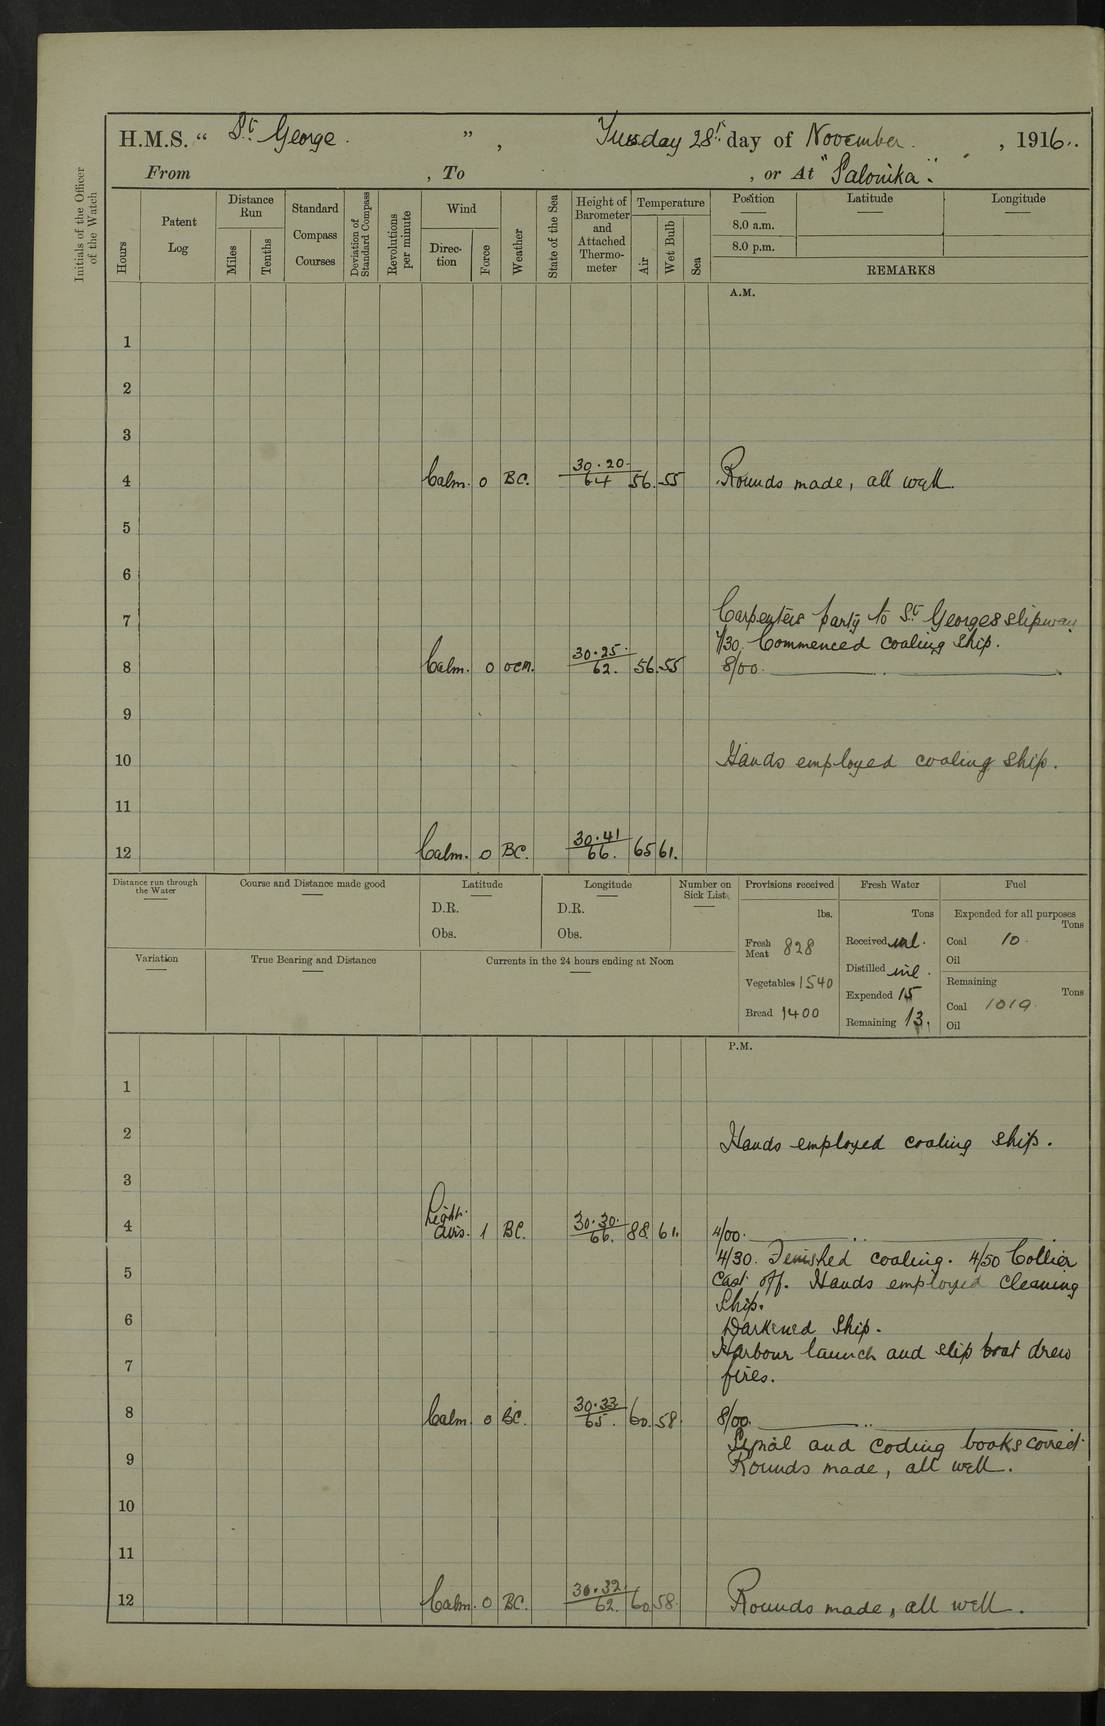 H.M.S. “ St George. ” , Tuesday 28th day of November. , 1916.
From , To , or At "Salonika".
Initials of the Officer of the Watch
Hours
Patent Log
Distance Run
Miles
Tenths
Standard Compass Courses
Deviation of Standard Compass
Revolutions per minute
Wind
Direction
Force
Weather
State of the Sea
Height of Barometer and Attached Thermometer
Temperature
Air
Wet Bulb
Sea
Position Latitude Longitude
8.0 a.m.
8.0 p.m.
REMARKS
A.M.
1
2
3
4 Calm. 0 BC. 30.20 64 56. 55 Rounds made, all well.
5
6
7 Carpenters party to St Georges slipway
7/30. Commenced coaling ship.
8 Calm. 0 ocm. 30.25 62. 56. 55 8/00.
9
10 Hands employed coaling ship.
11
12 Calm. 0 BC. 30.41 66. 65 61.
Distance run through the Water
Course and Distance made good
Latitude
D.R.
Obs.
Longitude
D.R.
Obs.
Number on Sick List
Provisions received
lbs.
Fresh Meat 828
Vegetables 1540
Bread 1400
Fresh Water
Tons
Received nil.
Distilled nil.
Expended 15
Remaining 13.
Fuel
Expended for all purposes
Tons
Coal 10.
Oil
Remaining
Tons
Coal 1019
Oil
Variation
True Bearing and Distance
Currents in the 24 hours ending at Noon
P.M.
1
2 Hands employed coaling ship.
3
4 Light airs. 1 BC. 30.30. 66. 88. 61. 4/00.
4/30. Finished coaling. 4/50 Collier
5 cast off. Hands employed cleaning
ship.
6 Darkened ship.
Harbour launch and slip boat drew
7 fires.
8 Calm. 0 BC. 30.33 65. 60. 58. 8/00.
Signal and coding books correct.
9 Rounds made, all well.
10
11
12 Calm. 0 BC. 30.32. 62. 60. 58. Rounds made, all well.